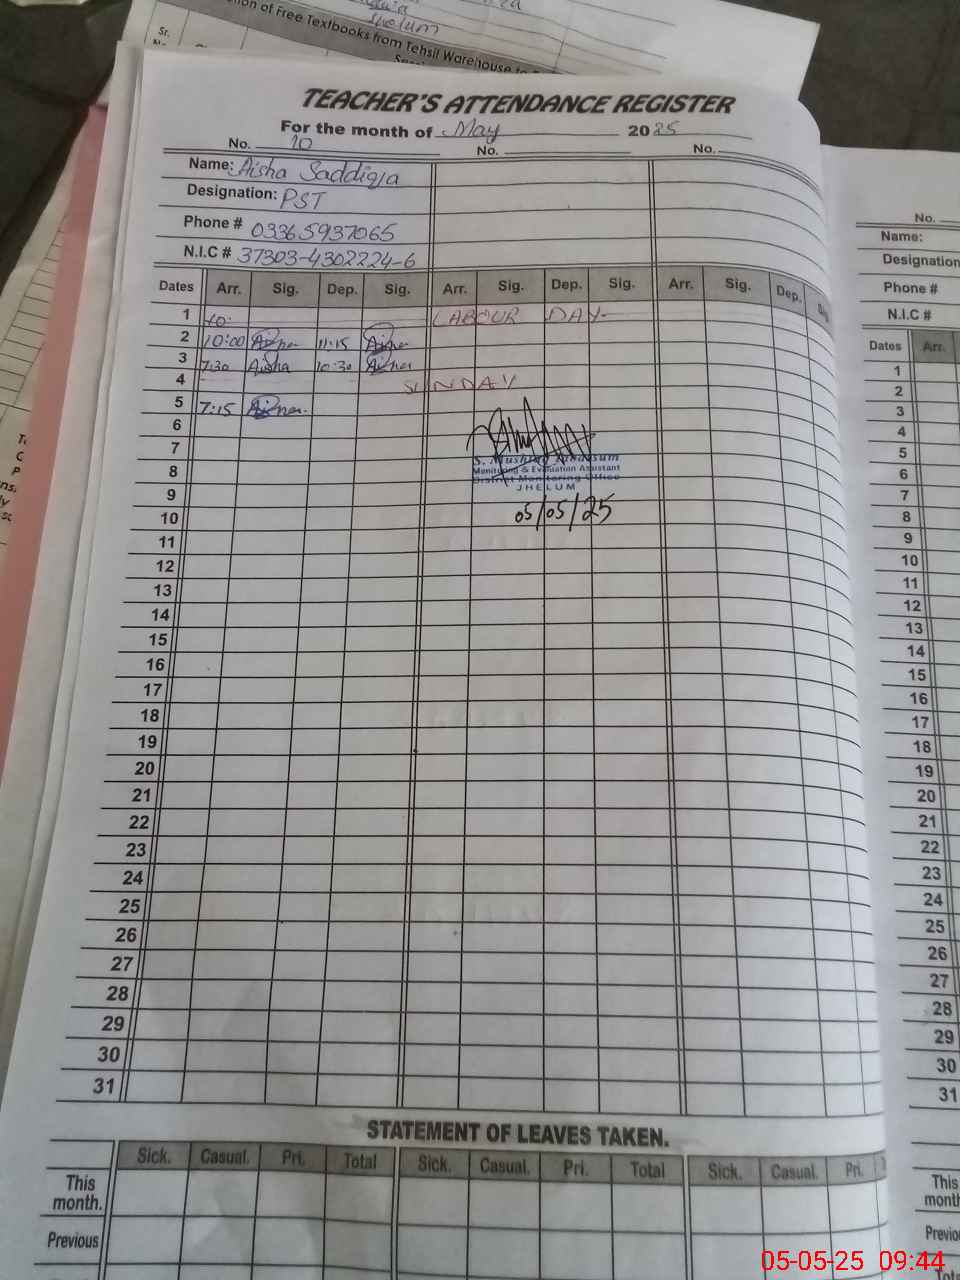 ion of Free Textbooks from Tehsil Warehouse to
Sr.
TEACHER'S ATTENDANCE REGISTER
For the month of May 2025
No. 10 No. No.
Name: Aisha Saddiqa
Designation: PST
Phone # 03365937065
N.I.C # 37303-4302224-6
Dates Arr. Sig. Dep. Sig. Arr. Sig. Dep. Sig. Arr. Sig. Dep. Sig.
1 10: LABOUR DAY
2 10:00 Aisha 11:15 Aisha
3 7:30 Aisha 10:30 Aisha
4 SUNDAY
5 7:15 Aisha
6
7
8
9
10
11
12
13
14
15
16
17
18
19
20
21
22
23
24
25
26
27
28
29
30
31
Monitoring & Evaluation Assistant
District Monitoring Office
JHELUM
05/05/25
STATEMENT OF LEAVES TAKEN.
Sick. Casual. Pri. Total Sick. Casual. Pri. Total Sick. Casual. Pri.
This
month.
Previous
No.
Name:
Designation
Phone #
N.I.C #
Dates Arr.
1
2
3
4
5
6
7
8
9
10
11
12
13
14
15
16
17
18
19
20
21
22
23
24
25
26
27
28
29
30
31
This
month
Previo
05-05-25 09:44